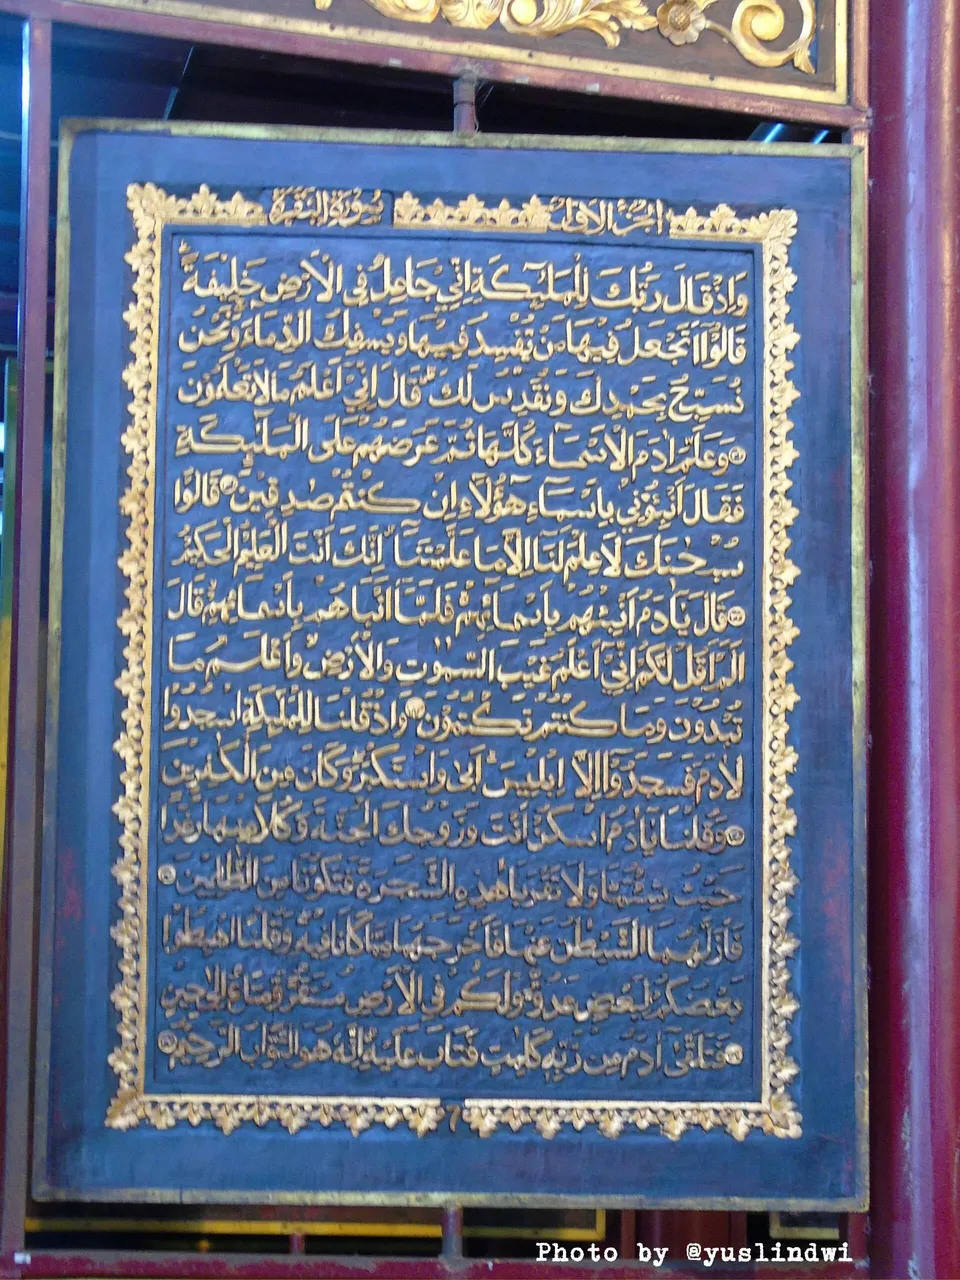 الجزء الاول سورة البقرة
وَاِذْ قَالَ رَبُّكَ لِلْمَلٰٓئِكَةِ اِنِّيْ جَاعِلٌ فِى الْاَرْضِ خَلِيْفَةً ۗ
قَالُوْٓا اَتَجْعَلُ فِيْهَا مَنْ يُّفْسِدُ فِيْهَا وَيَسْفِكُ الدِّمَاۤءَ وَنَحْنُ
نُسَبِّحُ بِحَمْدِكَ وَنُقَدِّسُ لَكَ ۗ قَالَ اِنِّيْٓ اَعْلَمُ مَا لَا تَعْلَمُوْنَ
۝٣٠ وَعَلَّمَ اٰدَمَ الْاَسْمَاۤءَ كُلَّهَا ثُمَّ عَرَضَهُمْ عَلَى الْمَلٰٓئِكَةِ
فَقَالَ اَنْۢبِـُٔوْنِيْ بِاَسْمَاۤءِ هٰٓؤُلَاۤءِ اِنْ كُنْتُمْ صٰدِقِيْنَ ۝٣١ قَالُوْا
سُبْحٰنَكَ لَا عِلْمَ لَنَآ اِلَّا مَا عَلَّمْتَنَا ۗ اِنَّكَ اَنْتَ الْعَلِيْمُ الْحَكِيْمُ
۝٣٢ قَالَ يٰٓاٰدَمُ اَنْۢبِئْهُمْ بِاَسْمَاۤئِهِمْ ۚ فَلَمَّآ اَنْۢبَاَهُمْ بِاَسْمَاۤئِهِمْ ۙ قَالَ
اَلَمْ اَقُلْ لَّكُمْ اِنِّيْٓ اَعْلَمُ غَيْبَ السَّمٰوٰتِ وَالْاَرْضِ ۙ وَاَعْلَمُ مَا
تُبْدُوْنَ وَمَا كُنْتُمْ تَكْتُمُوْنَ ۝٣٣ وَاِذْ قُلْنَا لِلْمَلٰٓئِكَةِ اسْجُدُوْا
لِاٰدَمَ فَسَجَدُوْٓا اِلَّآ اِبْلِيْسَ اَبٰى وَاسْتَكْبَرَ وَكَانَ مِنَ الْكٰفِرِيْنَ
۝٣٤ وَقُلْنَا يٰٓاٰدَمُ اسْكُنْ اَنْتَ وَزَوْجُكَ الْجَنَّةَ وَكُلَا مِنْهَا رَغَدًا
حَيْثُ شِئْتُمَا وَلَا تَقْرَبَا هٰذِهِ الشَّجَرَةَ فَتَكُوْنَا مِنَ الظّٰلِمِيْنَ ۝٣٥
فَاَزَلَّهُمَا الشَّيْطٰنُ عَنْهَا فَاَخْرَجَهُمَا مِمَّا كَانَا فِيْهِ ۖ وَقُلْنَا اهْبِطُوْا
بَعْضُكُمْ لِبَعْضٍ عَدُوٌّ ۚ وَلَكُمْ فِى الْاَرْضِ مُسْتَقَرٌّ وَّمَتَاعٌ اِلٰى حِيْنٍ
۝٣٦ فَتَلَقّٰٓى اٰدَمُ مِنْ رَّبِّهٖ كَلِمٰتٍ فَتَابَ عَلَيْهِ ۗ اِنَّهٗ هُوَ التَّوَّابُ الرَّحِيْمُ ۝٣٧
Photo by @yuslindwi